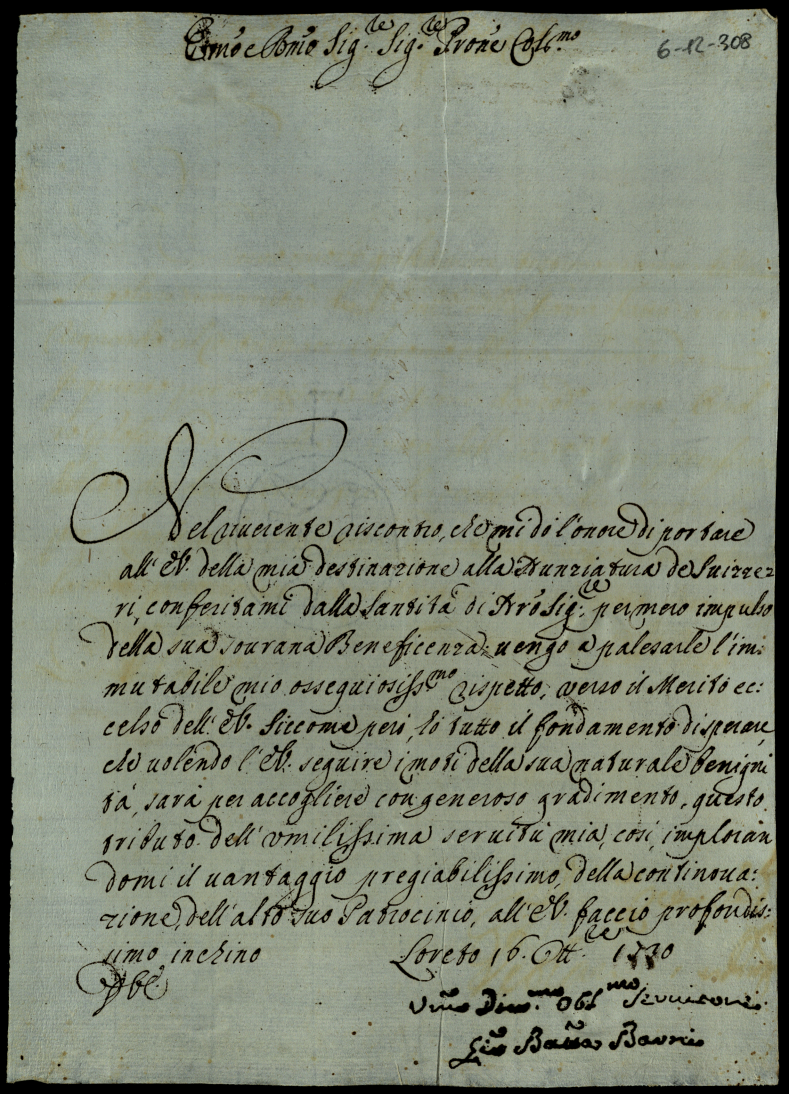 Emo e Rmo Sig.re Sig.re Prone Col.mo
6-12-308
Nel riuerente riscontro, che mi dò l'onore di portare
all' EV. della mia destinazione alla Nunziatura de Suizze:
ri, conferitami dalla Santità di Nrõ Sig.re per mero impulso
della sua sourana Beneficenza; uengo a palesarle l'im:
mutabile mio ossequiosiss.mo rispetto, verso il Merito ec:
celso dell' EV. Siccome però, hò tutto il fondamento di sperare,
che uolendo l' EV. seguire i moti della sua naturale benigni
tà, sarà per accogliere con generoso gradimento, questo
tributo dell' vmilissima seruitù mia, così, imploran
domi il uantaggio pregiabilissimo, della continoua:
zione, dell' alto suo Patrocinio, all' EV. faccio profondis:
simo inchino Loreto 16. Ott.re 1730
Vmo Diu.mo Obl.mo Seruitore
Gio Batta Barni